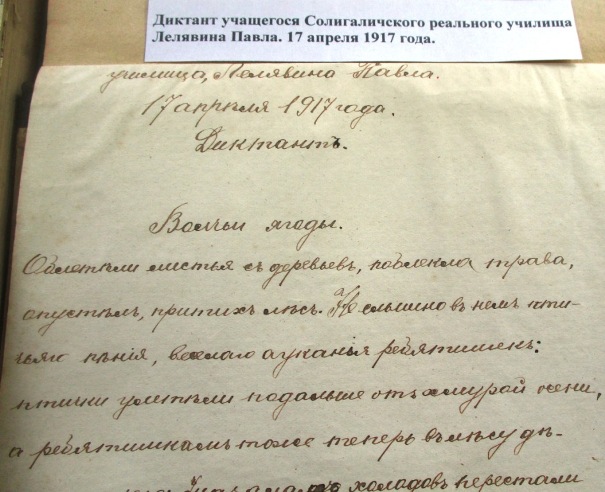 Диктант учащегося Солигаличского реального училища
Лелявина Павла. 17 апреля 1917 года.
училища, Лелявина Павла.
17 апрѣля 1917 года.
Диктантъ.
Волчьи ягоды.
Облетѣли листья съ деревьевъ, поблекла трава,
опустѣлъ, притихъ лѣсъ. Не слышно въ немъ пти-
чьяго пѣнія, веселаго ауканья ребятишекъ:
птички улетѣли подальше отъ хмурой осени,
а ребятишкамъ тоже теперь въ лѣсу дѣ-
холодовъ перестали